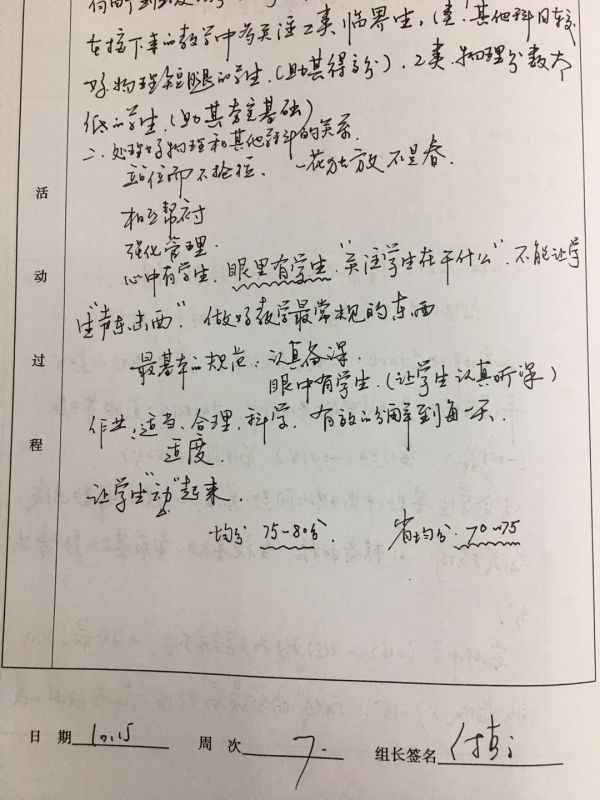 在接下来的教学中为关注2类临界生, 1类: 其他科目较
好, 物理短腿的学生. (助其得高分), 2类: 物理分数太
低的学生. (助其夯实基础)
二. 处理好物理和其他学科的关系.
站位而不抢位. 一花独放不是春.
相互帮衬
强化管理.
心中有学生. 眼里有学生. "关注学生在干什么". 不能让学
生"声东击西". 做好教学最常规的东西
最基本的规范: 认真备课.
眼中有学生. (让学生认真听课)
作业: 适当、合理、科学. 有效的分解到每一天.
适度.
让学生"动"起来.
均分 75-80分. 省均分. 70-75
活动过程
日 期 10.15 周 次 7. 组长签名